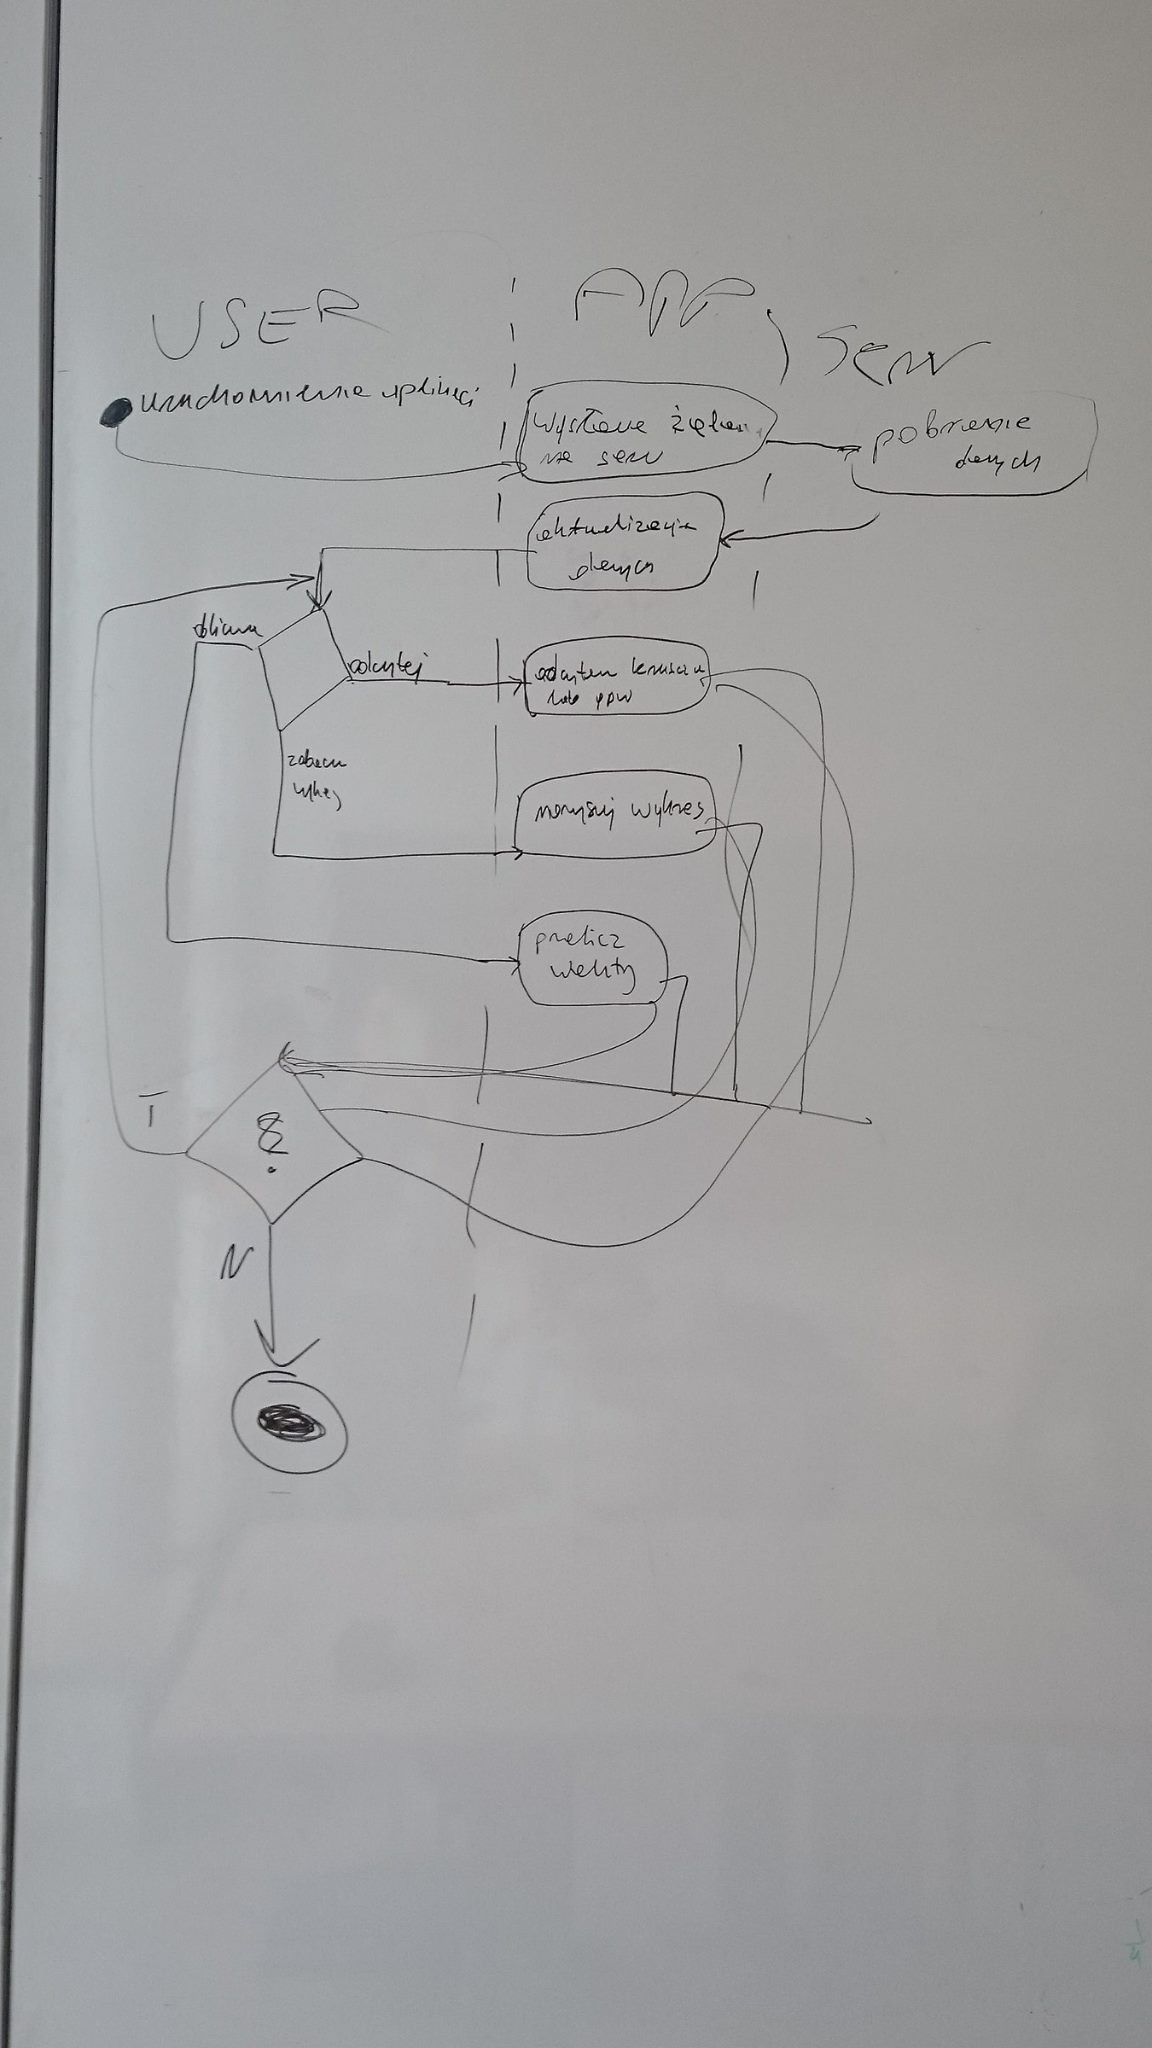 USER
APP
Serw
uruchomienie aplikacji
wysłanie żądan
na serw
pobranie
danych
aktualizacja
danych
oblicza
odczytej
odczytem
lub ppw
zobacz
wykres
narysuj wykres
przelicz
T
?
N